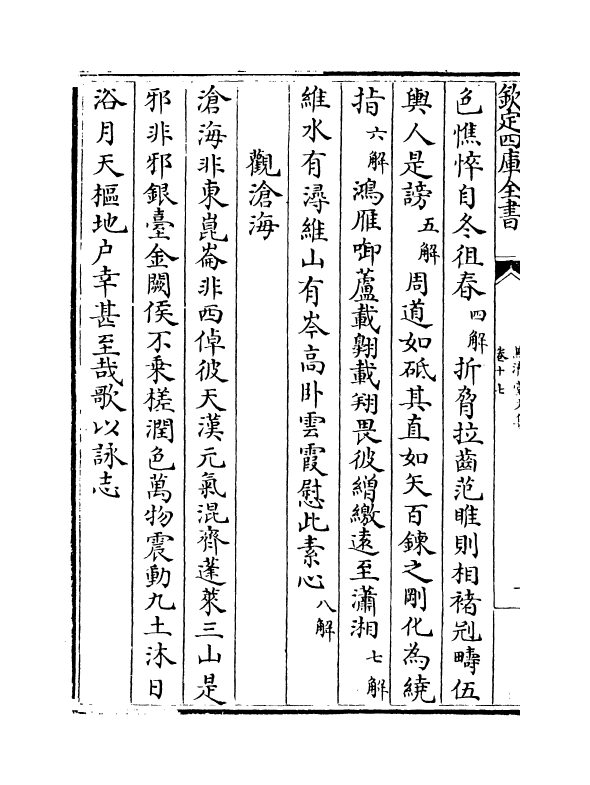 欽定四庫全書
卷十七
色憔悴自冬徂春 四解 折脅拉齒范睢則相褚冠疇伍
輿人是謗 五解 周道如砥其直如矢百鍊之剛化為繞
指 六解 鴻雁啣蘆載翺載翔畏彼繒繳遠至瀟湘 七解
維水有潯維山有岑高卧雲霞慰此素心 八解
觀滄海
滄海非東崑崙非西倬彼天漢元氣混齊蓬萊三山是
邪非邪銀臺金闕侯不乘槎潤色萬物震動九土沐日
浴月天樞地户幸甚至哉歌以詠志